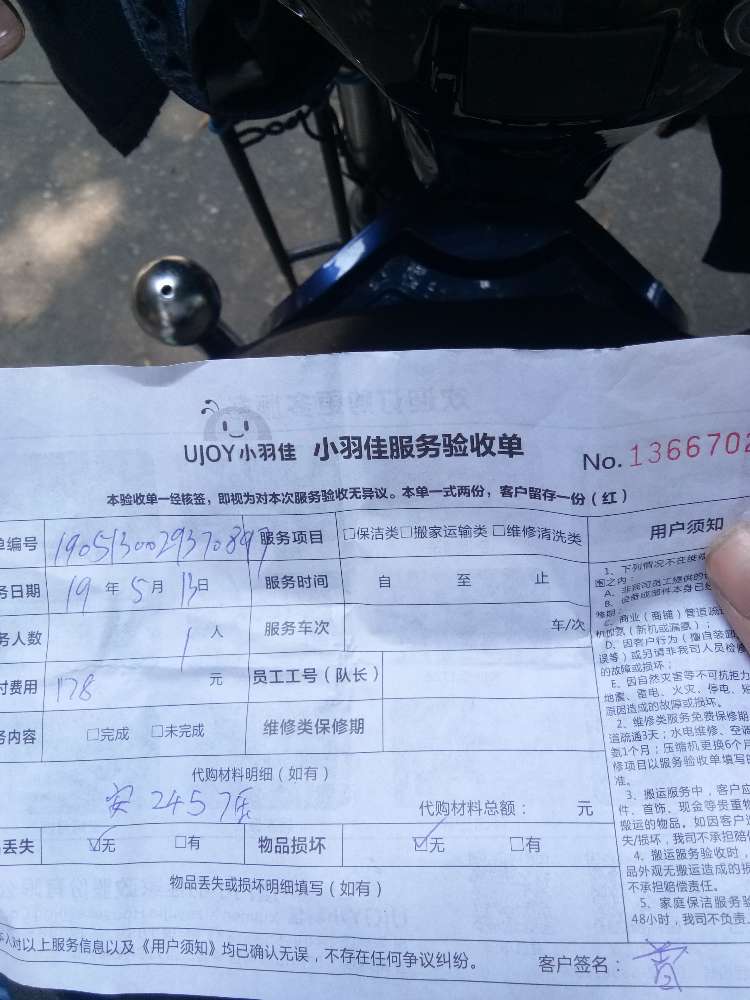 UJOY小羽佳 小羽佳服务验收单 No. 1366702
本验收单一经核签，即视为对本次服务验收无异议。本单一式两份，客户留存一份（红）
单编号 服务项目 □保洁类□搬家运输类 □维修清洗类
务日期 19 年 5 月 13 日 服务时间 自 至 止
务人数 1 人 服务车次 车/次
付费用 178 元 员工工号（队长）
务内容 □完成 □未完成 维修类保修期
代购材料明细（如有）
安 245 代购材料总额： 元
丢失 ☑无 □有 物品损坏 ☑无 □有
物品丢失或损坏明细填写（如有）
本人对以上服务信息以及《用户须知》均已确认无误，不存在任何争议纠纷。
客户签名：
用户须知
1、下列情况不在维修
围之内：
A、非我司员工提供的
B、设备或部件本身已
C、商业（商铺）管道疏
机加氨（新机或漏氨）；
D、因客户行为（擅自装
误等）或另请非我司人员检修
的故障或损坏；
E、因自然灾害等不可抗拒力
地震、雷电、火灾、停电、短
原因造成的故障或损坏。
2、维修类服务免费保修期
道疏通3天；水电维修、空调
氨1个月；压缩机更换6个月
修项目以服务验收单填写
准。
3、搬运服务中，客户应
件、首饰、现金等贵重物
搬运的物品。如因客户
失/损坏，我司不承担赔
4、搬运服务验收时，
品外观无搬运造成的损
不承担赔偿责任。
5、家庭保洁服务验
48小时，我司不负责